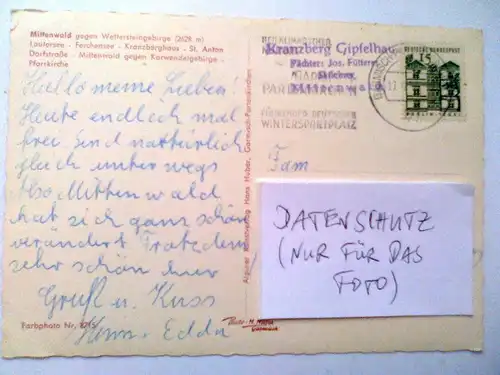 Mittenwald gegen Wettersteingebirge (2629 m)
Lautersee - Ferchensee - Kranzberghaus - St. Anton
Dorfstraße - Mittenwald gegen Karwendelgebirge -
Pfarrkirche
Kranzberg Gipfelhaus
Pächter: Jos. Fütterer
Mittenwald
WINTERSPORTPLATZ
DEUTSCHE BUNDESPOST
15
BERLIN
Hallo meine Lieben!
Heute endlich mal
frei. Sind natürlich
gleich unterwegs
Also Mittenwald
hat sich ganz schön
verändert Trotzdem
sehr schön hier
Gruß u. Kuss
Hans - Edda
Fam
DATENSCHUTZ
(NUR FÜR DAS
FOTO)
Farbphoto Nr. 8715
Hans Huber, Garmisch-Partenkirchen